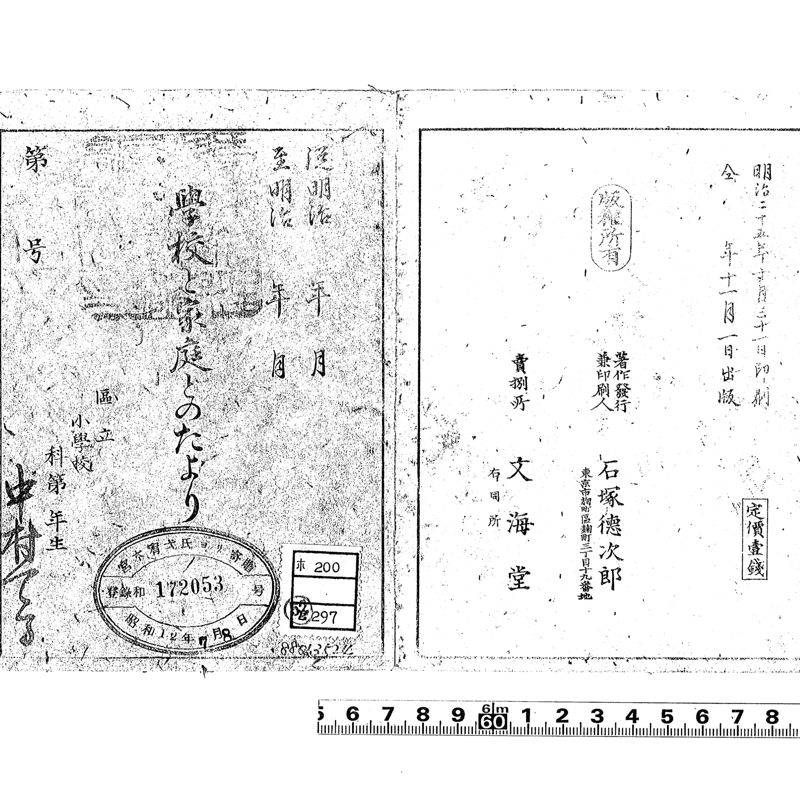 明治二十五年十月三十一日印刷
仝年十一月一日出版
定價壹錢
版權所有
著作發行
兼印刷人
石塚德次郎
東京市麹町區麹町三丁目十九番地
賣捌所
文海堂
右同所
從明治 年 月
至明治 年 月
學校と家庭とのたより
第 号
區立
小學校
科第 年生
中村
氏ヨリ寄贈
登錄和 172053 号
昭和12年7月8日
ホ 200
297
5 6 7 8 9 6m 60 1 2 3 4 5 6 7 8